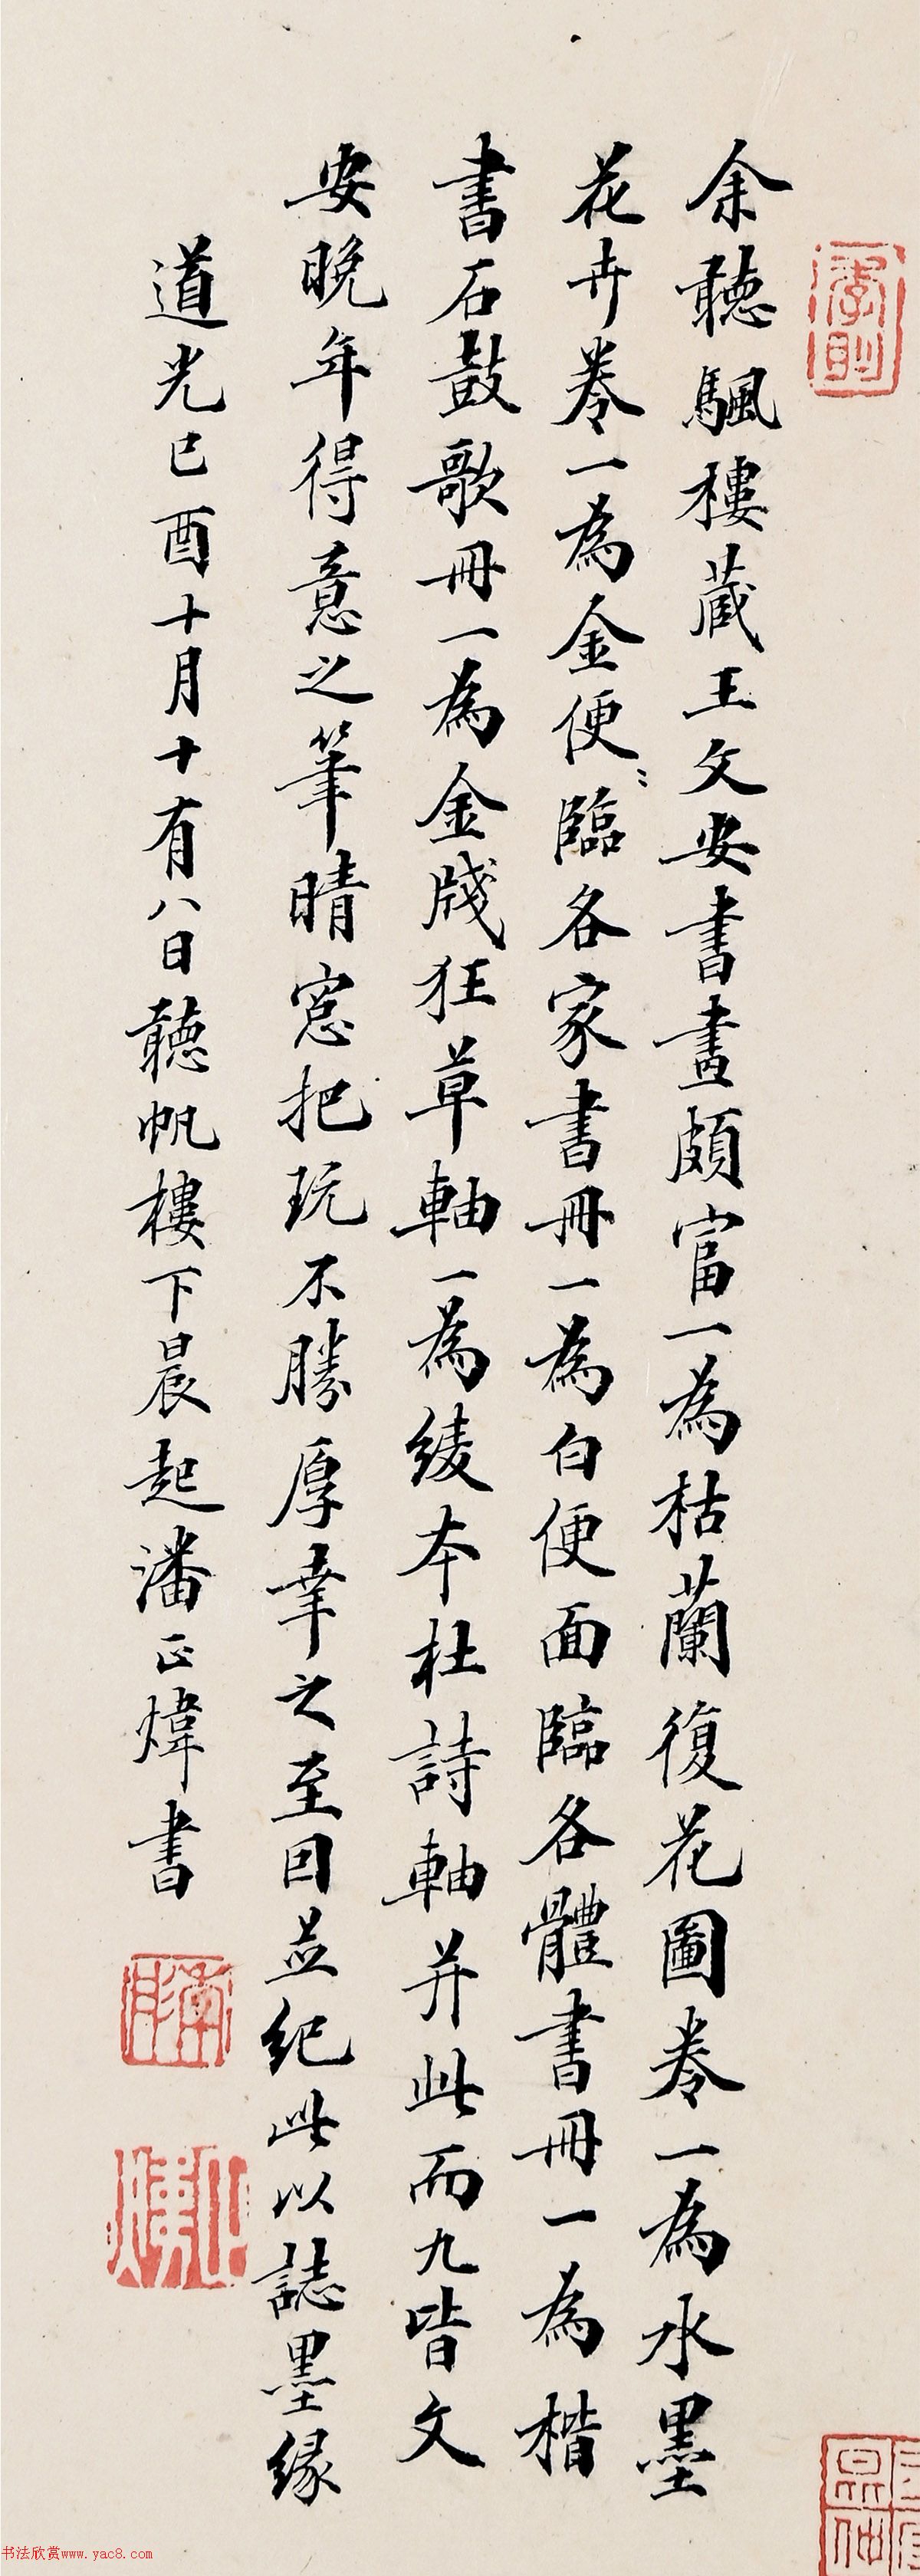 余聽颿樓藏王文安書畫頗富一為枯蘭復花圖卷一為水墨
花卉卷一為金便〻臨各家書冊一為白便面臨各體書冊一為楷
書石鼓歌冊一為金牋狂草軸一為綾本杜詩軸并此而九皆文
安晚年得意之筆晴窓把玩不勝厚幸之至因並紀此以誌墨緣
道光己酉十月十有八日聽帆樓下晨起潘正煒書
书法欣赏www.yac8.com